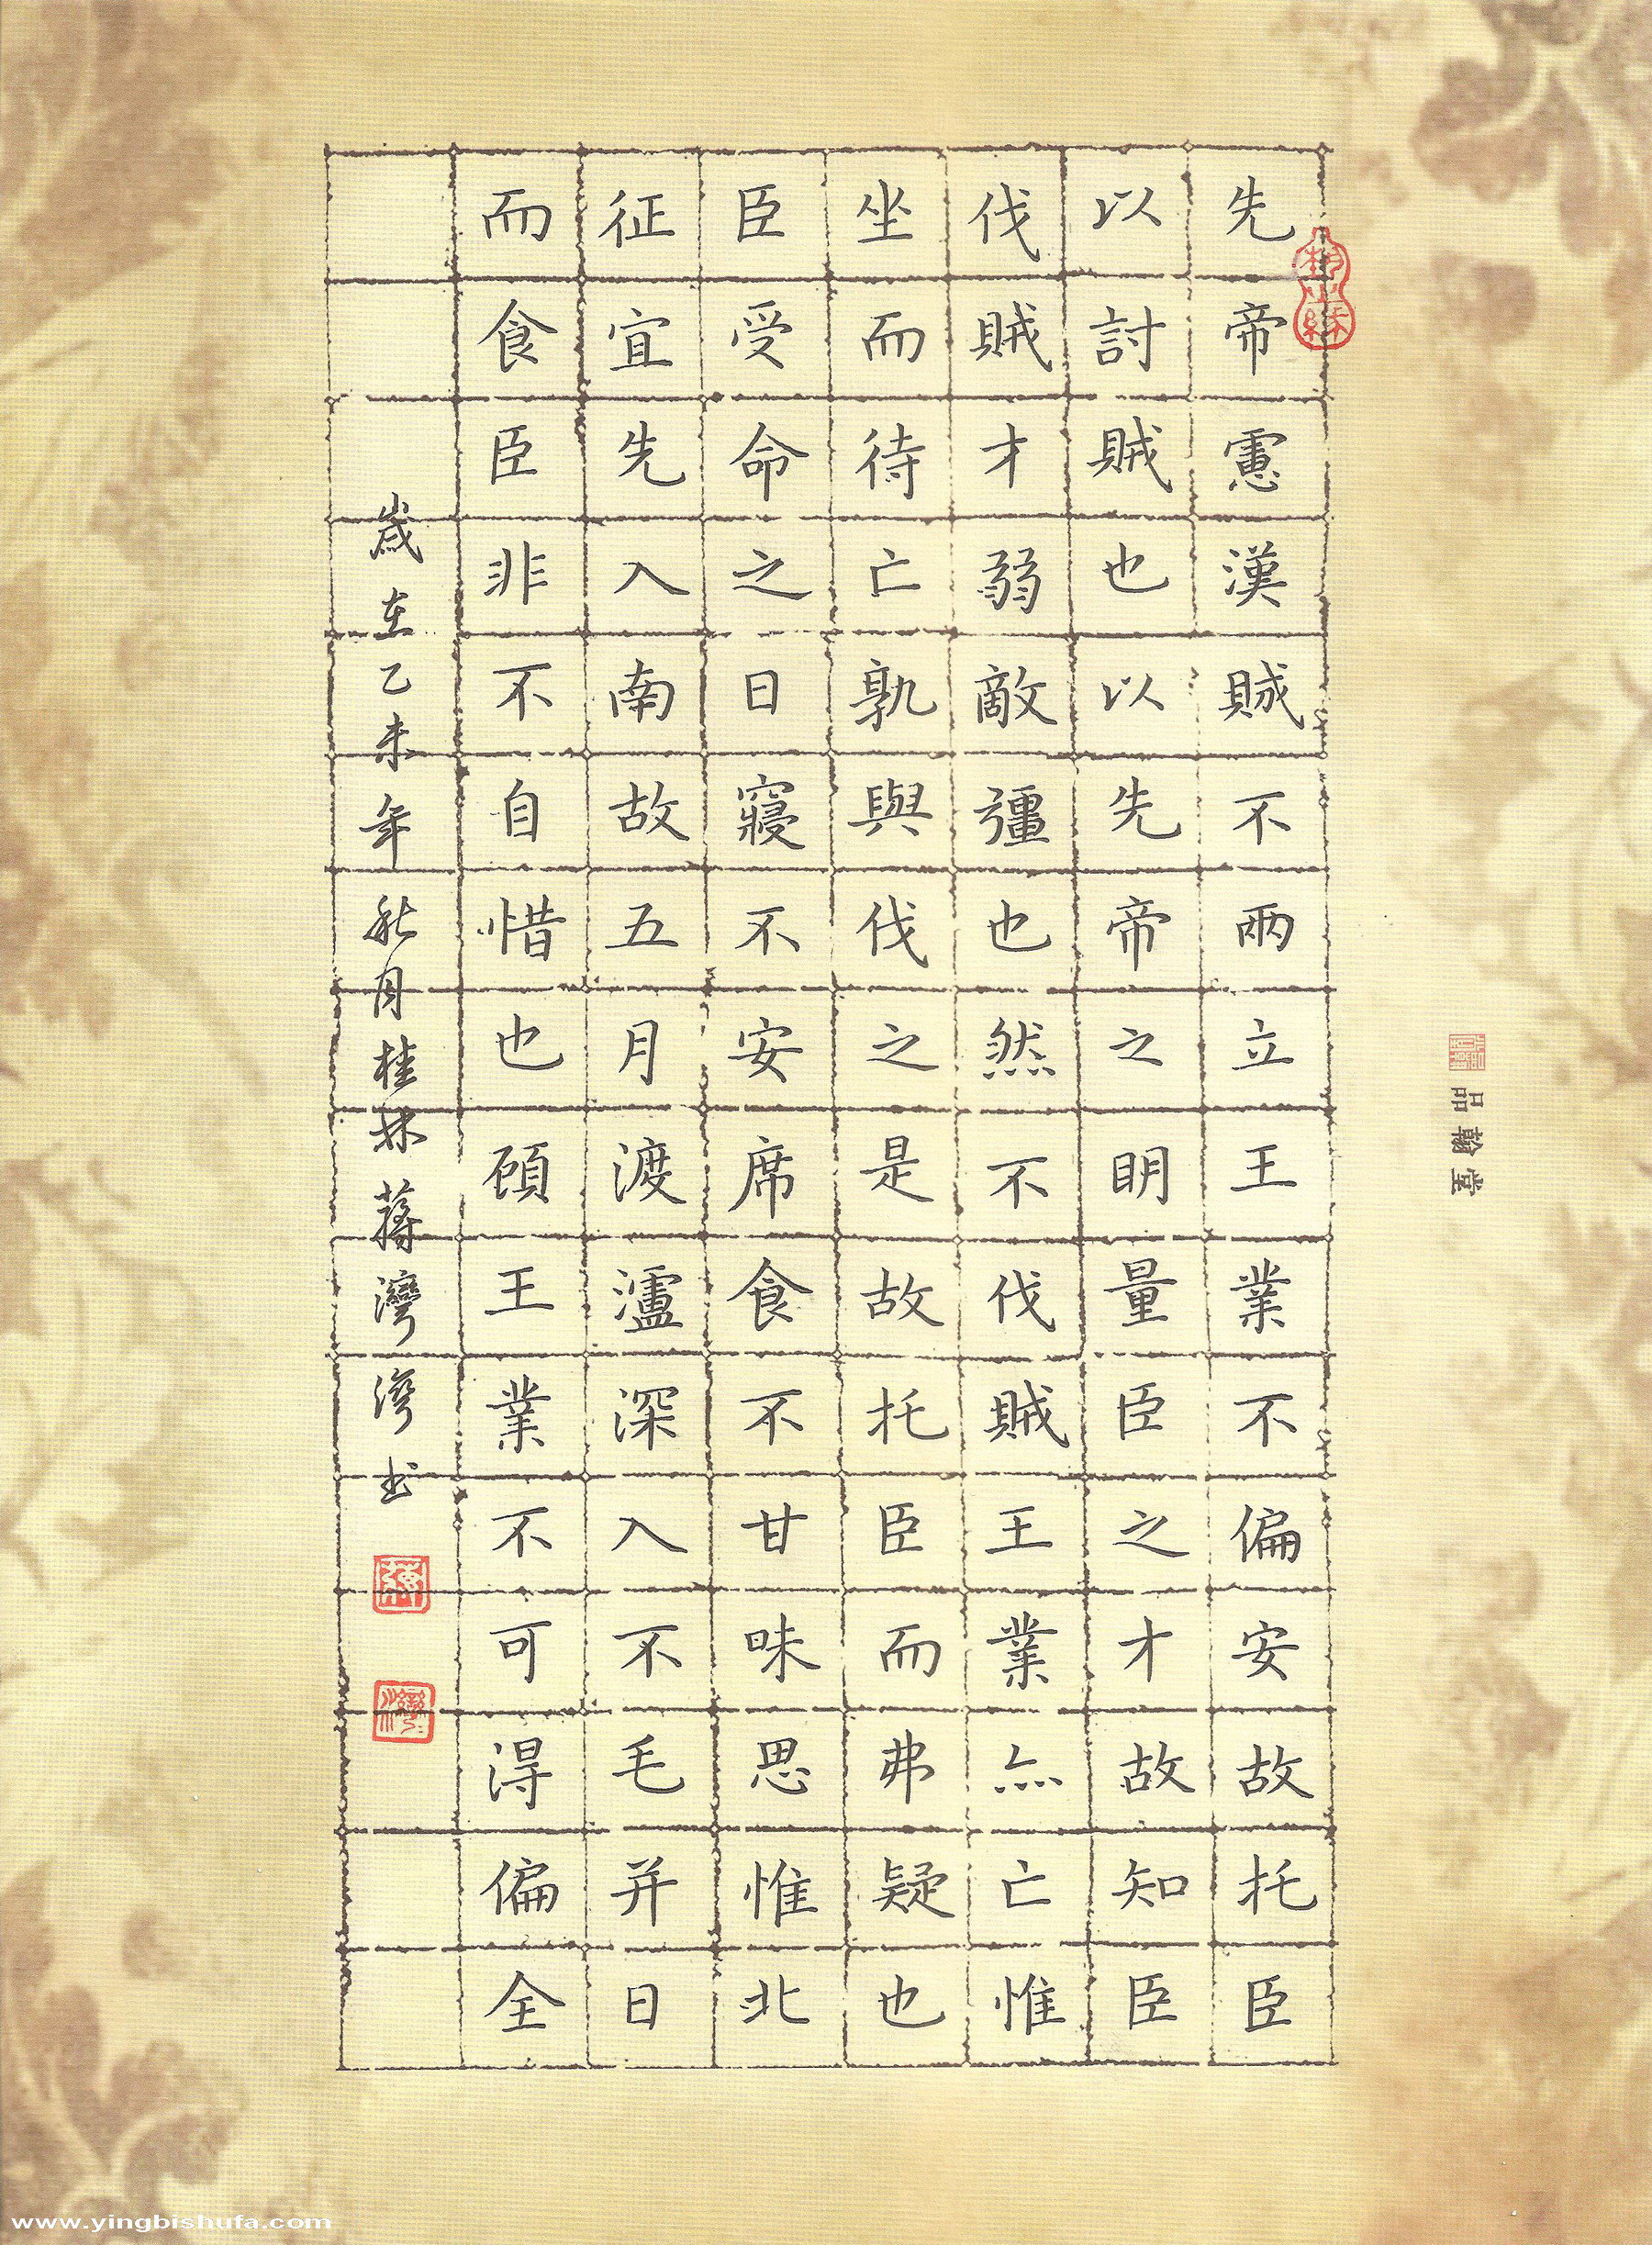 先帝慮漢賊不兩立王業不偏安故托臣
以討賊也以先帝之明量臣之才故知臣
伐賊才弱敵彊也然不伐賊王業亦亡惟
坐而待亡孰與伐之是故托臣而弗疑也
臣受命之日寢不安席食不甘味思惟北
征宜先入南故五月渡瀘深入不毛并日
而食臣非不自惜也顧王業不可得偏全
歲在乙未年秋月桂林蔣灣灣书
品翰堂
www.yingbishufa.com